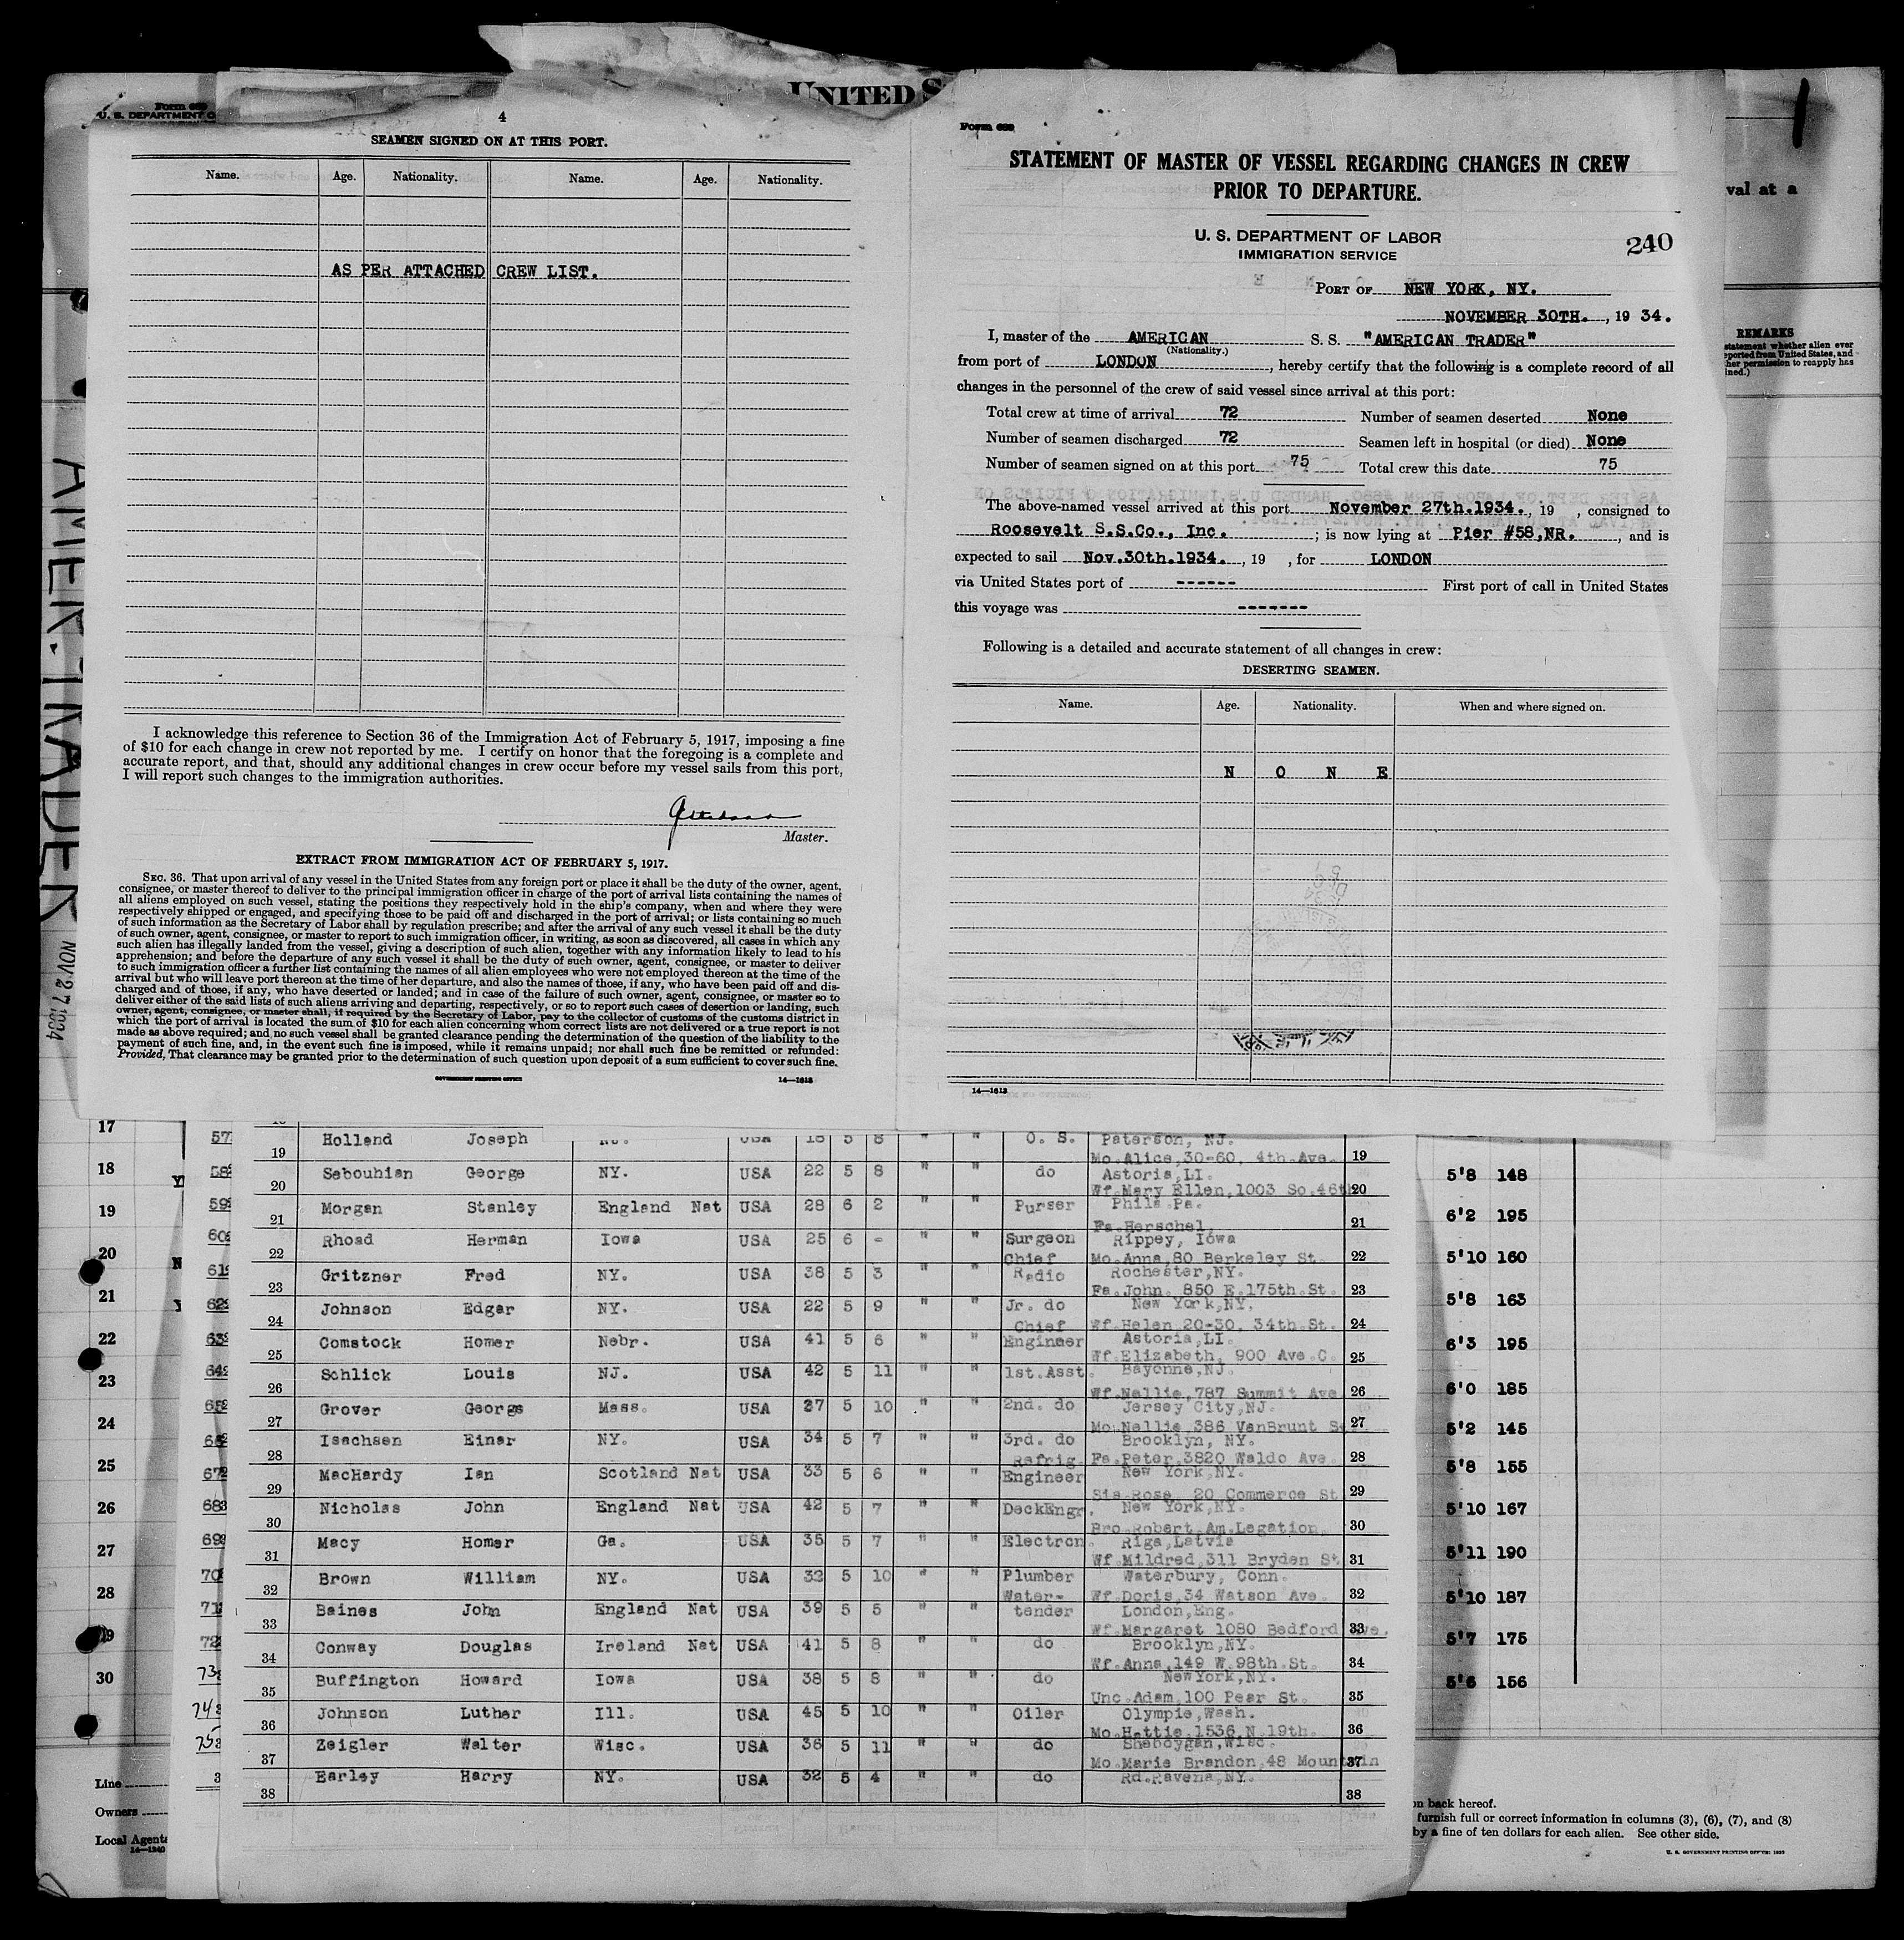 Form 689
U. S. DEPARTMENT O
UNITED S
4
SEAMEN SIGNED ON AT THIS PORT.
Name. Age. Nationality. Name. Age. Nationality.
AS PER ATTACHED CREW LIST.
I acknowledge this reference to Section 36 of the Immigration Act of February 5, 1917, imposing a fine
of $10 for each change in crew not reported by me. I certify on honor that the foregoing is a complete and
accurate report, and that, should any additional changes in crew occur before my vessel sails from this port,
I will report such changes to the immigration authorities.
Master.
EXTRACT FROM IMMIGRATION ACT OF FEBRUARY 5, 1917.
SEC. 36. That upon arrival of any vessel in the United States from any foreign port or place it shall be the duty of the owner, agent,
consignee, or master thereof to deliver to the principal immigration officer in charge of the port of arrival lists containing the names of
all aliens employed on such vessel, stating the positions they respectively hold in the ship's company, when and where they were
respectively shipped or engaged, and specifying those to be paid off and discharged in the port of arrival; or lists containing so much
of such information as the Secretary of Labor shall by regulation prescribe; and after the arrival of any such vessel it shall be the duty
of such owner, agent, consignee, or master to report to such immigration officer, in writing, as soon as discovered, all cases in which any
such alien has illegally landed from the vessel, giving a description of such alien, together with any information likely to lead to his
apprehension; and before the departure of any such vessel it shall be the duty of such owner, agent, consignee, or master to deliver
to such immigration officer a further list containing the names of all alien employees who were not employed thereon at the time of the
arrival but who will leave port thereon at the time of her departure, and also the names of those, if any, who have been paid off and dis-
charged and of those, if any, who have deserted or landed; and in case of the failure of such owner, agent, consignee, or master so to
deliver either of the said lists of such aliens arriving and departing, respectively, or so to report such cases of desertion or landing, such
owner, agent, consignee, or master shall, if required by the Secretary of Labor, pay to the collector of customs of the customs district in
which the port of arrival is located the sum of $10 for each alien concerning whom correct lists are not delivered or a true report is not
made as above required; and no such vessel shall be granted clearance pending the determination of the question of the liability to the
payment of such fine, and, in the event such fine is imposed, while it remains unpaid; nor shall such fine be remitted or refunded:
Provided, That clearance may be granted prior to the determination of such question upon deposit of a sum sufficient to cover such fine.
GOVERNMENT PRINTING OFFICE 14—1613
Form 689
STATEMENT OF MASTER OF VESSEL REGARDING CHANGES IN CREW
PRIOR TO DEPARTURE.
U. S. DEPARTMENT OF LABOR
IMMIGRATION SERVICE
240
PORT OF NEW YORK, NY.
NOVEMBER 30TH. , 19 34.
I, master of the AMERICAN S. S. "AMERICAN TRADER"
(Nationality.)
from port of LONDON , hereby certify that the following is a complete record of all
changes in the personnel of the crew of said vessel since arrival at this port:
Total crew at time of arrival 72 Number of seamen deserted None
Number of seamen discharged 72 Seamen left in hospital (or died) None
Number of seamen signed on at this port 75 Total crew this date 75
The above-named vessel arrived at this port November 27th.1934. , 19 , consigned to
Roosevelt S.S.Co., Inc. ; is now lying at Pier #58,NR. , and is
expected to sail Nov.30th.1934. , 19 , for LONDON
via United States port of ------ First port of call in United States
this voyage was -------
Following is a detailed and accurate statement of all changes in crew:
DESERTING SEAMEN.
Name. Age. Nationality. When and where signed on.
N O N E
14—1613
val at a
REMARKS
statement whether alien ever
eported from United States, and
her permission to reapply has
ined.)
AMER. TRADER
NOV 27 1934
19 Holland Joseph NJ. USA 18 5 8 " " O. S. Paterson, NJ. 19
Mo.Alice,30-60, 4th.Ave.
20 Sebouhian George NY. USA 22 5 8 " " do Astoria,LI. 20
Wf.Mary Ellen,1003 So.46th
21 Morgan Stanley England Nat USA 28 6 2 " " Purser Phila Pa. 21
Fa.Herschel,
22 Rhoad Herman Iowa USA 25 6 - " " Surgeon Rippey, Iowa 22
Chief Mo.Anna,80 Berkeley St.
23 Gritzner Fred NY. USA 38 5 3 " " Radio Rochester,NY. 23
Fa.John. 850 E.175th.St.
24 Johnson Edgar NY. USA 22 5 9 " " Jr. do New York,NY. 24
Chief Wf.Helen 20-30, 34th.St.
25 Comstock Homer Nebr. USA 41 5 6 " " Engineer Astoria,LI. 25
Wf.Elizabeth, 900 Ave.C.
26 Schlick Louis NJ. USA 42 5 11 " " 1st.Asst. Bayonne,NJ. 26
Wf.Nellie,787 Summit Ave
27 Grover George Mass. USA 37 5 10 " " 2nd. do Jersey City,NJ. 27
Mo.Nellie 386 VanBrunt St
28 Isachsen Einar NY. USA 34 5 7 " " 3rd. do Brooklyn, NY. 28
Refrig. Fa.Peter,3820 Waldo Ave.
29 MacHardy Ian Scotland Nat USA 33 5 6 " " Engineer New York,NY. 29
Sis.Rose, 20 Commerce St
30 Nicholas John England Nat USA 42 5 7 " " DeckEngr. New York,NY. 30
Bro.Robert,Am.Legation
31 Macy Homer Ga. USA 35 5 7 " " Electron. Riga,Latvia 31
Wf.Mildred,311 Bryden St
32 Brown William NY. USA 32 5 10 " " Plumber Waterbury, Conn. 32
Water- Wf.Doris,34 Watson Ave.
33 Baines John England Nat USA 39 5 5 " " tender London,Eng. 33
Wf.Margaret 1080 Bedford Ave.
34 Conway Douglas Ireland Nat USA 41 5 8 " " do Brooklyn,NY. 34
Wf.Anna,149 W.98th.St.
35 Buffington Howard Iowa USA 38 5 8 " do NewYork,NY. 35
Unc.Adam,100 Pear St.
36 Johnson Luther Ill. USA 45 5 10 " " Oiler Olympia,Wash. 36
Mo.Hattie,1536 N.19th.
37 Zeigler Walter Wisc. USA 36 5 11 " " do Sheboygan,Wisc. 37
Mo.Marie Brandon,48 Mountain
38 Earley Harry NY. USA 32 5 4 " " do Rd.Ravena,NY. 38
17
18
19
20
21
22
23
24
25
26
27
28
29
30
57
58
59
60
61
62
63
64
65
66
67
68
69
70
71
72
73
74
75
5'8 148
6'2 195
5'10 160
5'8 163
6'3 195
6'0 185
5'2 145
5'8 155
5'10 167
5'11 190
5'10 187
5'7 175
5'6 156
Line
Owners
Local Agents
14—1240
on back hereof.
furnish full or correct information in columns (3), (6), (7), and (8)
by a fine of ten dollars for each alien. See other side.
U. S. GOVERNMENT PRINTING OFFICE: 1933